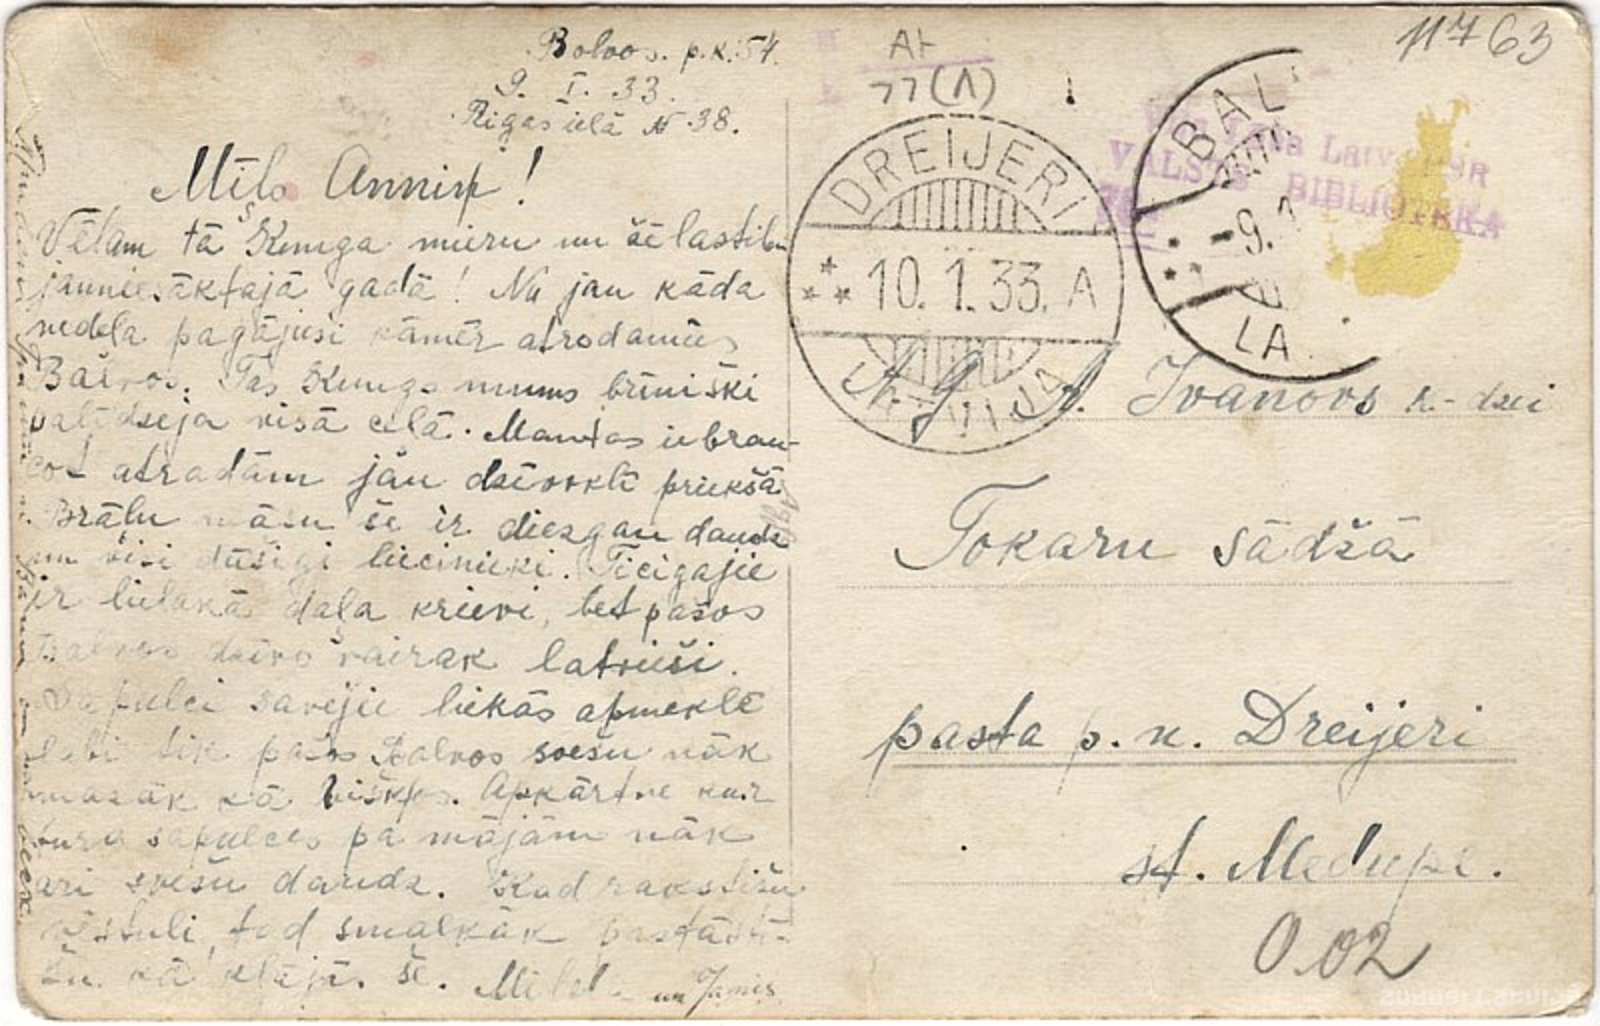 Bolvos. p.k. 54.
9. I. 33.
Rigas ielā № 38.
Mīlo Anniņ!
Vēlam tā Kunga mieru un
jauniesāktajā gadā! Nu jau kāda
nedela pagājusi kāmēr atrodamies
Balvos. Tas Kungs mums brīniški
palīdzeja visā celā. Mantas iebrau-
cot atradām jau dzīvoklī priekšā.
Brāļu māsu še ir diezgan daudz
un visi dūšigi liecinieki. Ticigajie
ir lielakā daļa krievi, bet pašos
Balvos dzīvo vairak latvieši.
Sapulci savejie liekās apmeklē
labi tik pašos Balvos svešu nāk
mazāk kā Apkārtne kur
tura sapulces pa mājām nāk
ari svešu daudz. Kad rakstišu
vēstuli, tad smalkāk pastāstī-
šu kā klājas še. un Jamis.
At
77(1)
DREIJERI
10. 1. 33. A
LATVIJA
BAL
-9. 1
LA
11763
Latv. PSR
VALSTS BIBLIOTEKA
A. g. A. Ivanovs k-dzei
Tokaru sādžā
pasta p. n. Dreijeri
st. Medupe.
0.02
zudusi Latvija